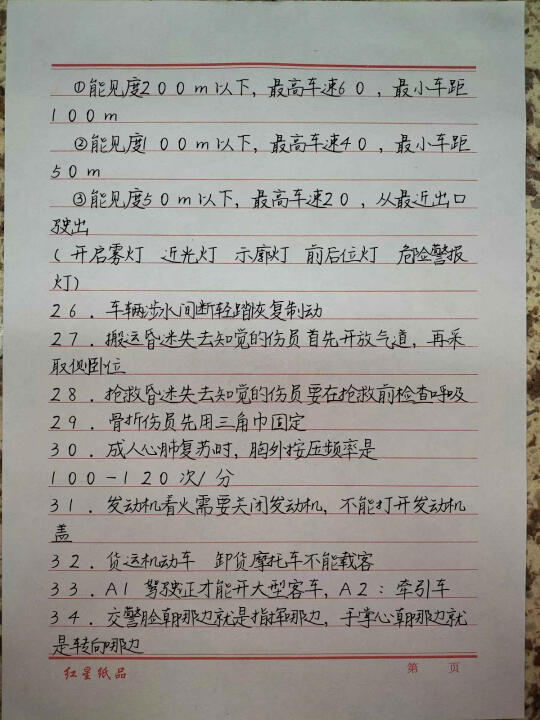 ①能见度200m以下，最高车速60，最小车距
100m
②能见度100m以下，最高车速40，最小车距
50m
③能见度50m以下，最高车速20，从最近出口
驶出
（开启雾灯 近光灯 示廓灯 前后位灯 危险警报
灯）
26．车辆涉水间断轻踏恢复制动
27．搬运昏迷失去知觉的伤员首先开放气道，再采
取侧卧位
28．抢救昏迷失去知觉的伤员要在抢救前检查呼吸
29．骨折伤员先用三角巾固定
30．成人心肺复苏时，胸外按压频率是
100-120次/分
31．发动机着火需要关闭发动机，不能打开发动机
盖
32．货运机动车 卸货摩托车不能载客
33．A1驾驶证才能开大型客车，A2：牵引车
34．交警脸朝哪边就是指挥哪边，手掌心朝哪边就
是转向哪边
红星纸品 第 页